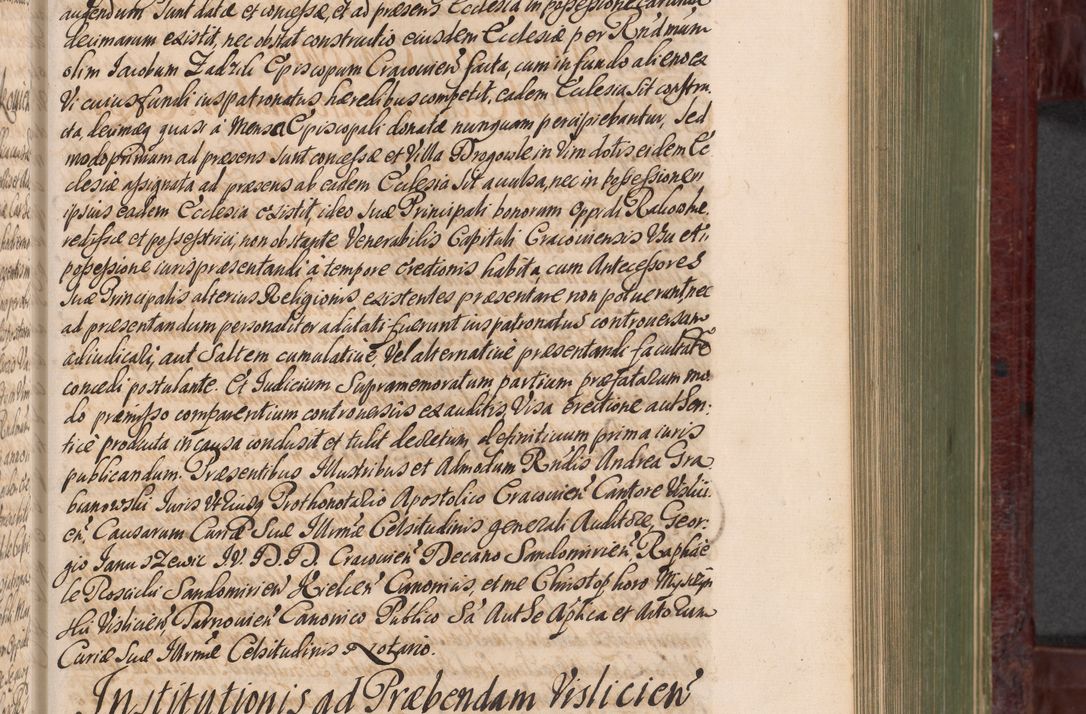 augendum sunt datæ et concessæ, et ad præsens Ecclesia in possessione earundem
decimarum existit, nec obstat constructio eiusdem Ecclesiæ per Rndmum
olim Iacobum Zadzik Episcopum Cracovien̄ facta, cum in fundo alieno ex
Vi cuius fundi ius patronatus hæredibus competit, eadem Ecclesia sit constru
cta, decimæq quasi a Mensa Episcopali donatæ nunquam percipiebantur, sed
modo primum ad præsens sunt concessæ et Villa Drogowle in Vim dotis eidem Ec
clesiæ assignata ad præsens ab eadem Ecclesia sit avulsa, nec in possessione
ipsius eadem Ecclesia existit, ideo suæ Principali bonorum Oppidi Rakow hæ
redissæ et possestrici, non obstante Venerabilis Capituli Cracoviensis Usu et
possessione iuris præsentandi a tempore Erectionis habita, cum Antecessores
suæ Principalis alterius Religionis existentes præsentare non potuerunt, nec
ad præsentandum personaliter adcitati fuerunt ius patronatus controversum
adiudicali, aut saltem cumulative, Vel alternative præsentandi facultatē
concedi postulante. Et Iudicium Supramemoratum partium præfatarum mo
do præmisso comparentium controversiis exauditis, Visa Erectione authen:
tice producta in causa conclusit et tulit decretum definitivum prima iuris
publicandum. Præsentibus Illustribus et Admodum Rndis Andrea Gra
bianowski Iuris Utriusq Prothonotario Apostolico Cracovien̄ Cantore Vislici
en̄ Causarum Curiæ Suæ Illrmæ Celsitudinis generali Auditore, Geor:
gio Ianuszewic I.V.D.D. Cracovien̄ Decano Sandomirien̄ Raphae
le Roscicki Sandomirien̄ Kielcen̄ Canonicis, et me Christophoro
ski Vislicien̄, Tarnovien̄ Canonico Publico Sa Authe Aplica et Actorum
Curiæ Suæ Illrmæ Celsitudinis Notario.
Institutionis ad Præbendam Vislicien̄